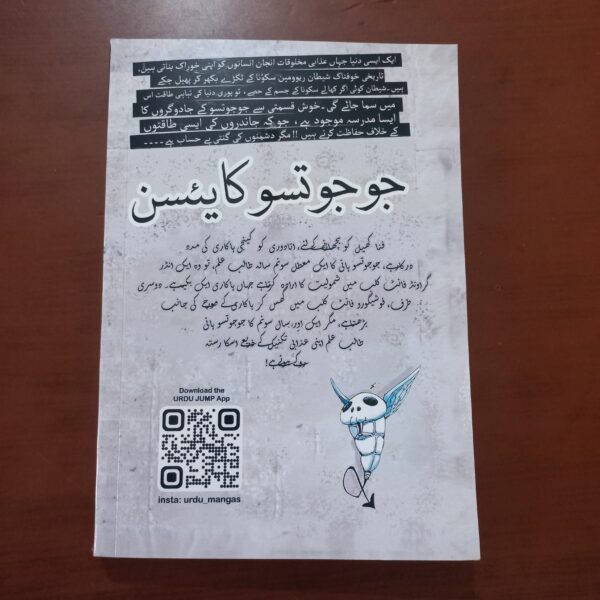 ایک ایسی دنیا جہاں عذابی مخلوقات انجان انسانوں کو اپنی خوراک بناتی ہیں،
تاریخی خوفناک شیطان ریوومین سکونا کے ٹکڑے بکھر کر پھیل چکے
ہیں۔شیطان کوئی اگر کھا لے سکونا کے جسم کے حصے، تو پوری دنیا کی تباہی طاقت اس
میں سما جائے گی۔خوش قسمتی سے جوجوتسو کے جادوگروں کا
ایسا مدرسہ موجود ہے، جو کہ جانداروں کی ایسی طاقتوں
کے خلاف حفاظت کرتے ہیں!!مگر دشمنوں کی گنتی بے حساب ہے----
جوجوتسو کایئسن
فنا کھیل کو جھیلنے کے لئے، اتادوری کو کینجی ہاکاری کی مدد
درکار ہے، جوجوتسو ہائی کا ایک معطل سوئم سالہ طالب علم، تو وہ ایک انڈر
گراونڈ فائٹ کلب میں شمولیت کا ارادہ کرتا ہے جہاں ہاکاری ایک بکی ہے۔ دوسری
طرف، فوشیگورو فائٹ کلب میں گھس کر ہاکاری کے کی جانب
بڑھتا ہے، مگر ایک اور سال سوئم کا جوجوتسو ہائی
طالب علم اپنی عذابی تکنیک کے ذریعے اسکا رستہ
روکے ہوئے ہے!
Download the
URDU JUMP App
insta: urdu_mangas